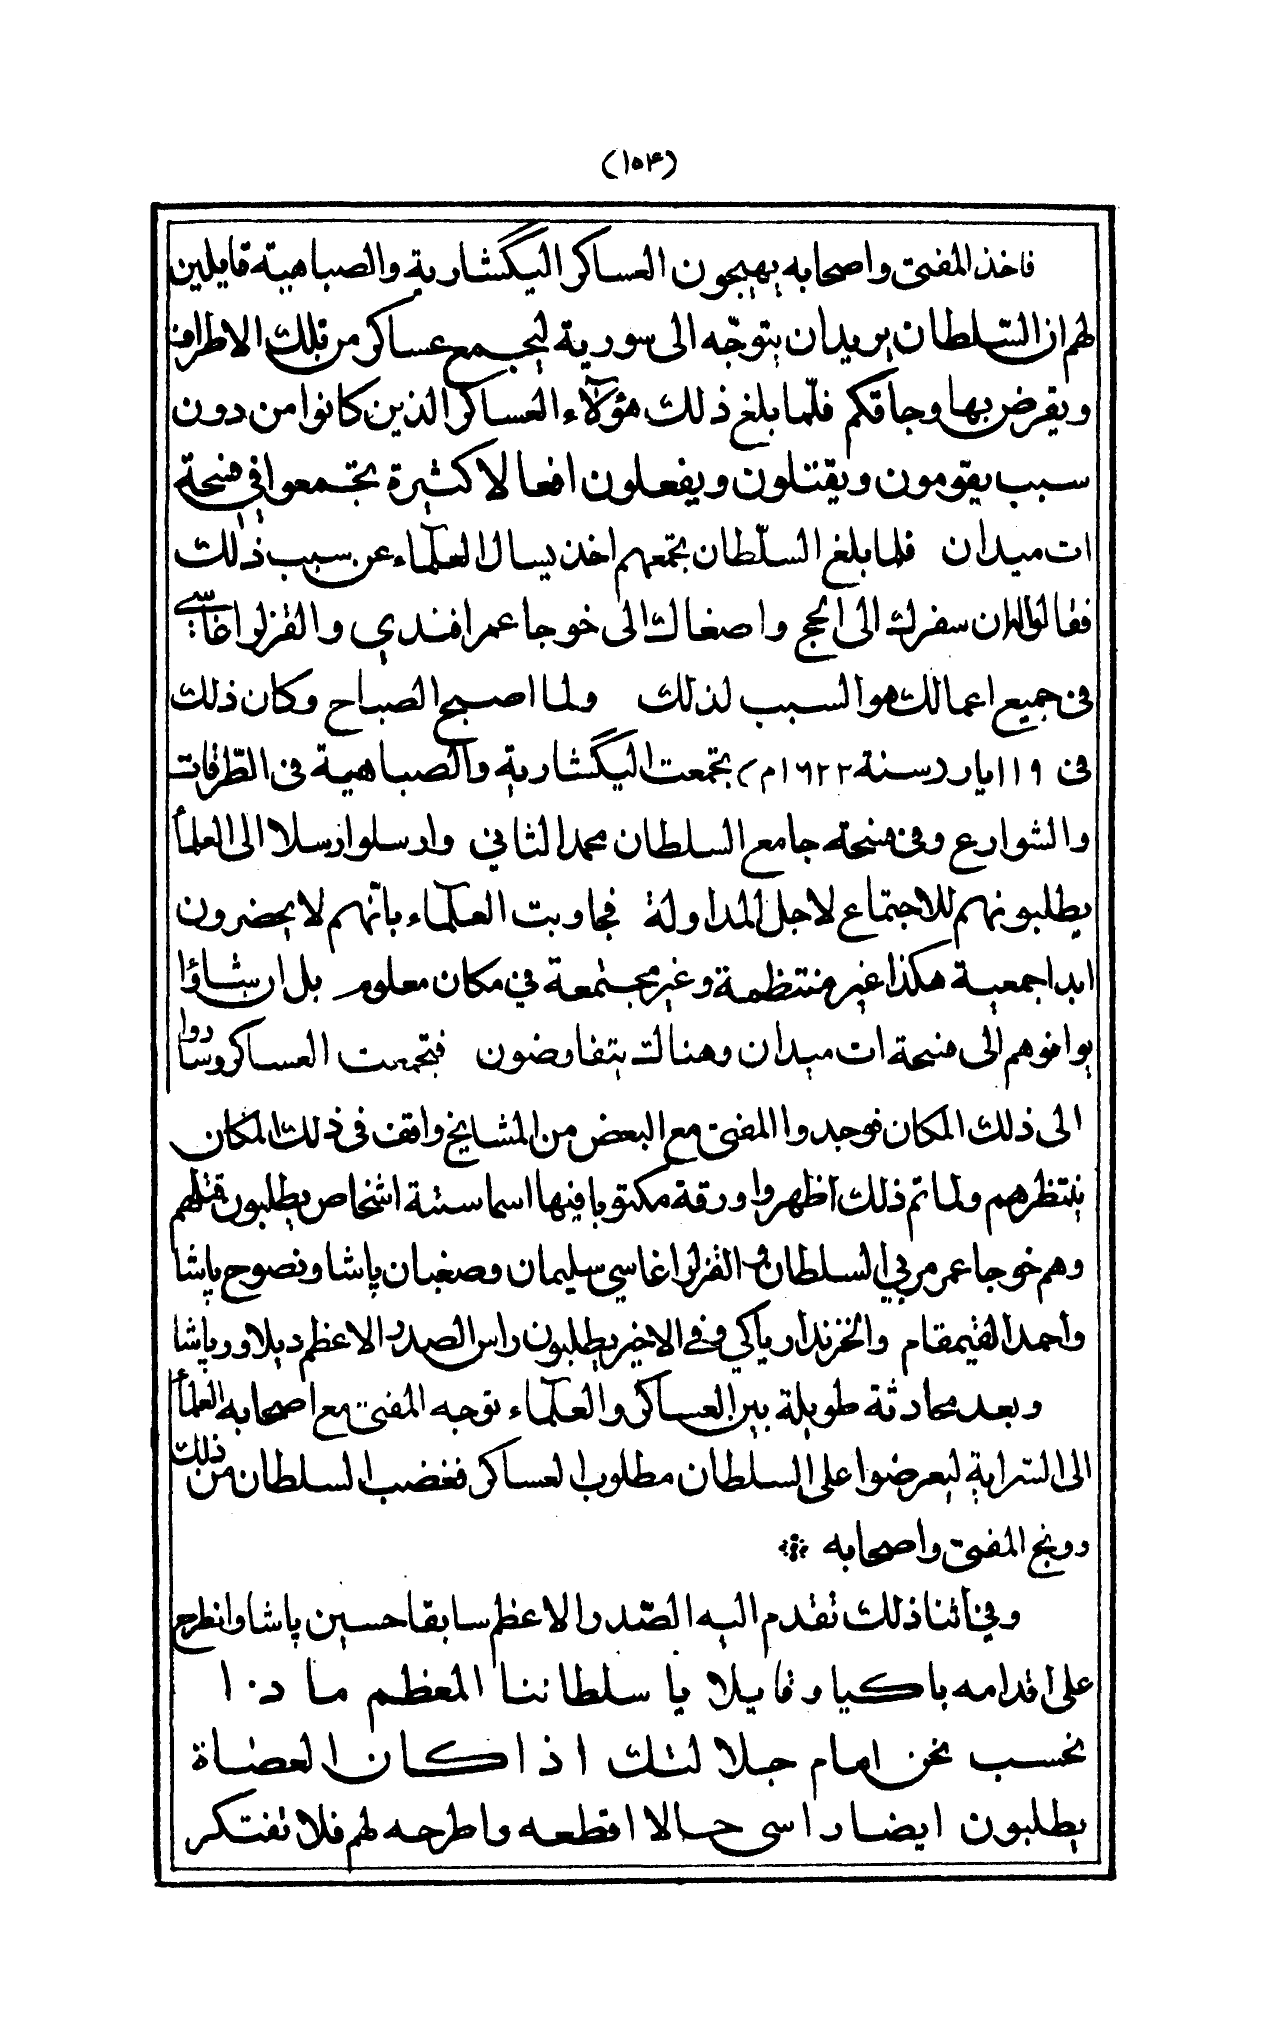 (١٥٤)
فاخذ المفتى واصحابه يهيجون العساكر اليكشارية والصباهية قايلين
لهم ان السّلطان يريد ان يتوجّه الى سورية ليجمع عساكر من تلك الاطراف
ويقرض بها وجاقكم فلمّا بلغ ذلك هؤلآء العساكر الذين كانوا من دون
سبب يقومون ويقتلون ويفعلون افعالا كثيرة تجمعوا في فسحة
ات ميدان فلما بلغ السلّطان تجمّعهم اخذ يسال العلمآء عن سبب ذلك
فقالوا له ان سفرك الى الحج واصغاك الى خوجا عمر افندي والقزلر اغاسي
فى جميع اعمالك هو السبب لذلك ولما اصبح الصباح وكان ذلك
فى ١٩ ايار (سنة ١٦٢٢م) تجمّعت اليكشارية والصباهية فى الطّرقات
والشوارع وفى فسحة جامع السلطان محمد الثاني وارسلوا رسلا الى العلمآ
يطلبونهم للاجتماع لاجل المداولة فجاوبت العلمآء بانّهم لا يحضرون
ابدا جمعية هكذا غير منتظمة وغير مجتمعة في مكان معلوم بل ان شاؤا
يوافوهم الى فسحة ات ميدان وهنالك يتفاوضون فتجمعت العساكر وساروا
الى ذلك المكان فوجدوا المفتى مع البعض من المشايخ واقف فى ذلك المكان
ينتظرهم ولما تم ذلك اظهروا ورقة مكتوبا فيها اسما ستة اشخاص يطلبون قتلهم
وهم خوجا عمر مربي السلطان والقزلر اغاسي سليمان وصغبان پاشا ونصوح پاشا
واحمد القيمقام والخزندار ياكي وفي الاخير يطلبون راس الصدر الاعظم ديلاور پاشا
وبعد محادثة طويلة بين العساكر والعلمآء توجه المفتى مع اصحابه العلمآ
الى السّراية ليعرضوا على السلطان مطلوب العساكر فغضب السلطان من ذلك
وونج المفتى واصحابه ❊
وفي اثنا ذلك تقدم اليه الصّدر الاعظم سابقا حسين پاشا وانطرح
على اقدامه باكيا وقايلا يا سلطاننا المعظم ماذا
نحسب نحن امام جلالتك اذا كان العصاة
يطلبون ايضا راسى حالا اقطعه واطرحه لهم فلا تفتكر